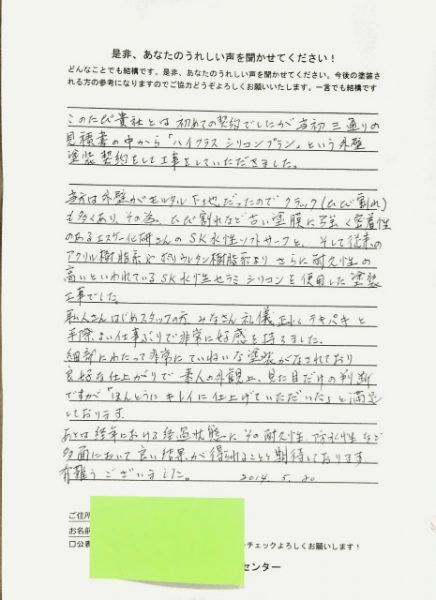 是非、あなたのうれしい声を聞かせてください！
どんなことでも結構です。是非、あなたのうれしい声を聞かせてください。今後の塗装さ
れる方の参考になりますのでご協力どうぞよろしくお願いいたします。一言でも結構です
このたび貴社とは初めての契約でしたが当初三通りの
見積書の中から「ハイクラスシリコンプラン」という外壁
塗装契約をして工事をしていただきました。
当方は外壁がモルタル下地だったのでクラック(ひび割れ)
も多くあり、その為、ひび割れなど古い塗膜に強く密着性
のあるエスケー化研さんのSK水性ソフトサーフと、そして従来の
アクリル樹脂系やポリウレタン樹脂系よりさらに耐久性の
高いといわれているSK水性セラミシリコンを使用した塗装
工事でした。
職人さんはじめスタッフの方、みなさん礼儀正しくテキパキと
手際よい仕事ぶりで非常に好感を持ちました。
細部にわたって非常にていねいな塗装がなされており
良好な仕上がりで素人の外観上、見た目だけの判断
ですが「ほんとうにキレイに仕上げていただいた」と満足
しております。
あとは経年における経過状態にその耐久性、防水性など
多面において良い結果が得られることを期待しております。
有難うございました。 2014. 5. 20
ご住所
お名前
□公表
チェックよろしくお願いします！
センター